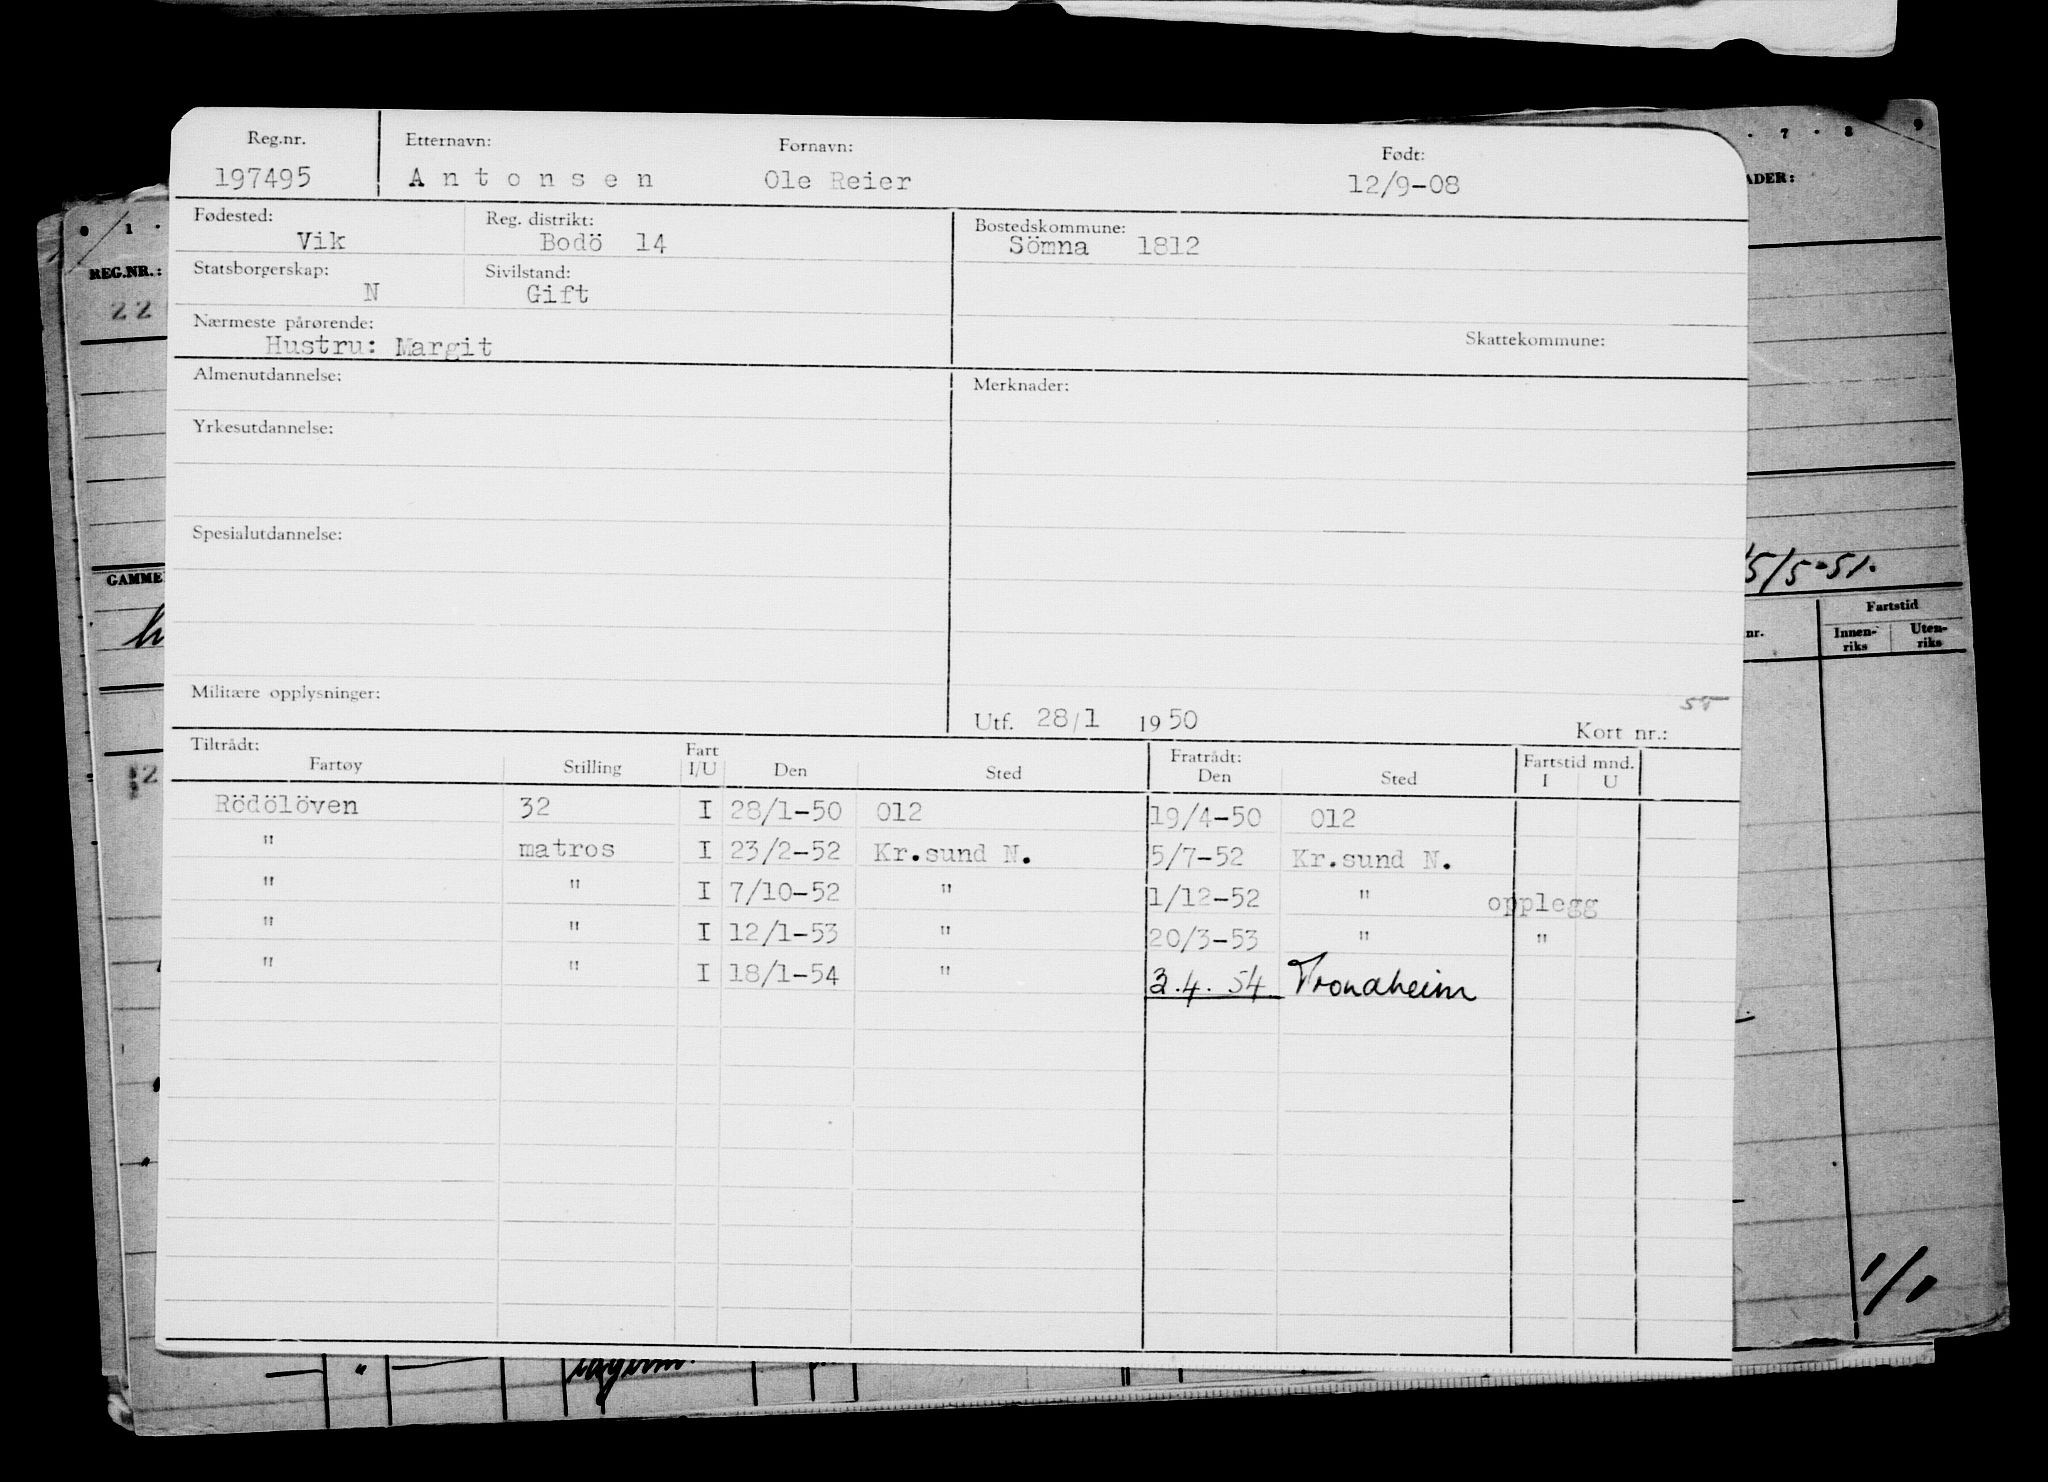 Reg.nr. Etternavn: Fornavn: Født:
197495 Antonsen Ole Reier 12/9-08
Fødested: Reg. distrikt: Bostedskommune:
Vik Bodö 14 Sömna 1812
Statsborgerskap: Sivilstand:
N Gift
Nærmeste pårørende: Skattekommune:
Hustru: Margit
Almenutdannelse: Merknader:
Yrkesutdannelse:
Spesialutdannelse:
Militære opplysninger:
Utf. 28/1 1950 Kort nr.:
Tiltrådt: Fart Fratrådt: Fartstid mnd.
Fartøy Stilling I/U Den Sted Den Sted I U
Rödölöven 32 I 28/1-50 012 19/4-50 012
" matros I 23/2-52 Kr.sund N. 5/7-52 Kr.sund N.
" " I 7/10-52 " 1/12-52 " opplegg
" " I 12/1-53 " 20/3-53 " "
" " I 18/1-54 " 3.4.54 Trondheim
7 · 8 9
ADER:
0 1 ·
REG.NR.:
22
GAMME
15/5-51.
Fartstid
nr. Innen-riks Uten-riks
1/1